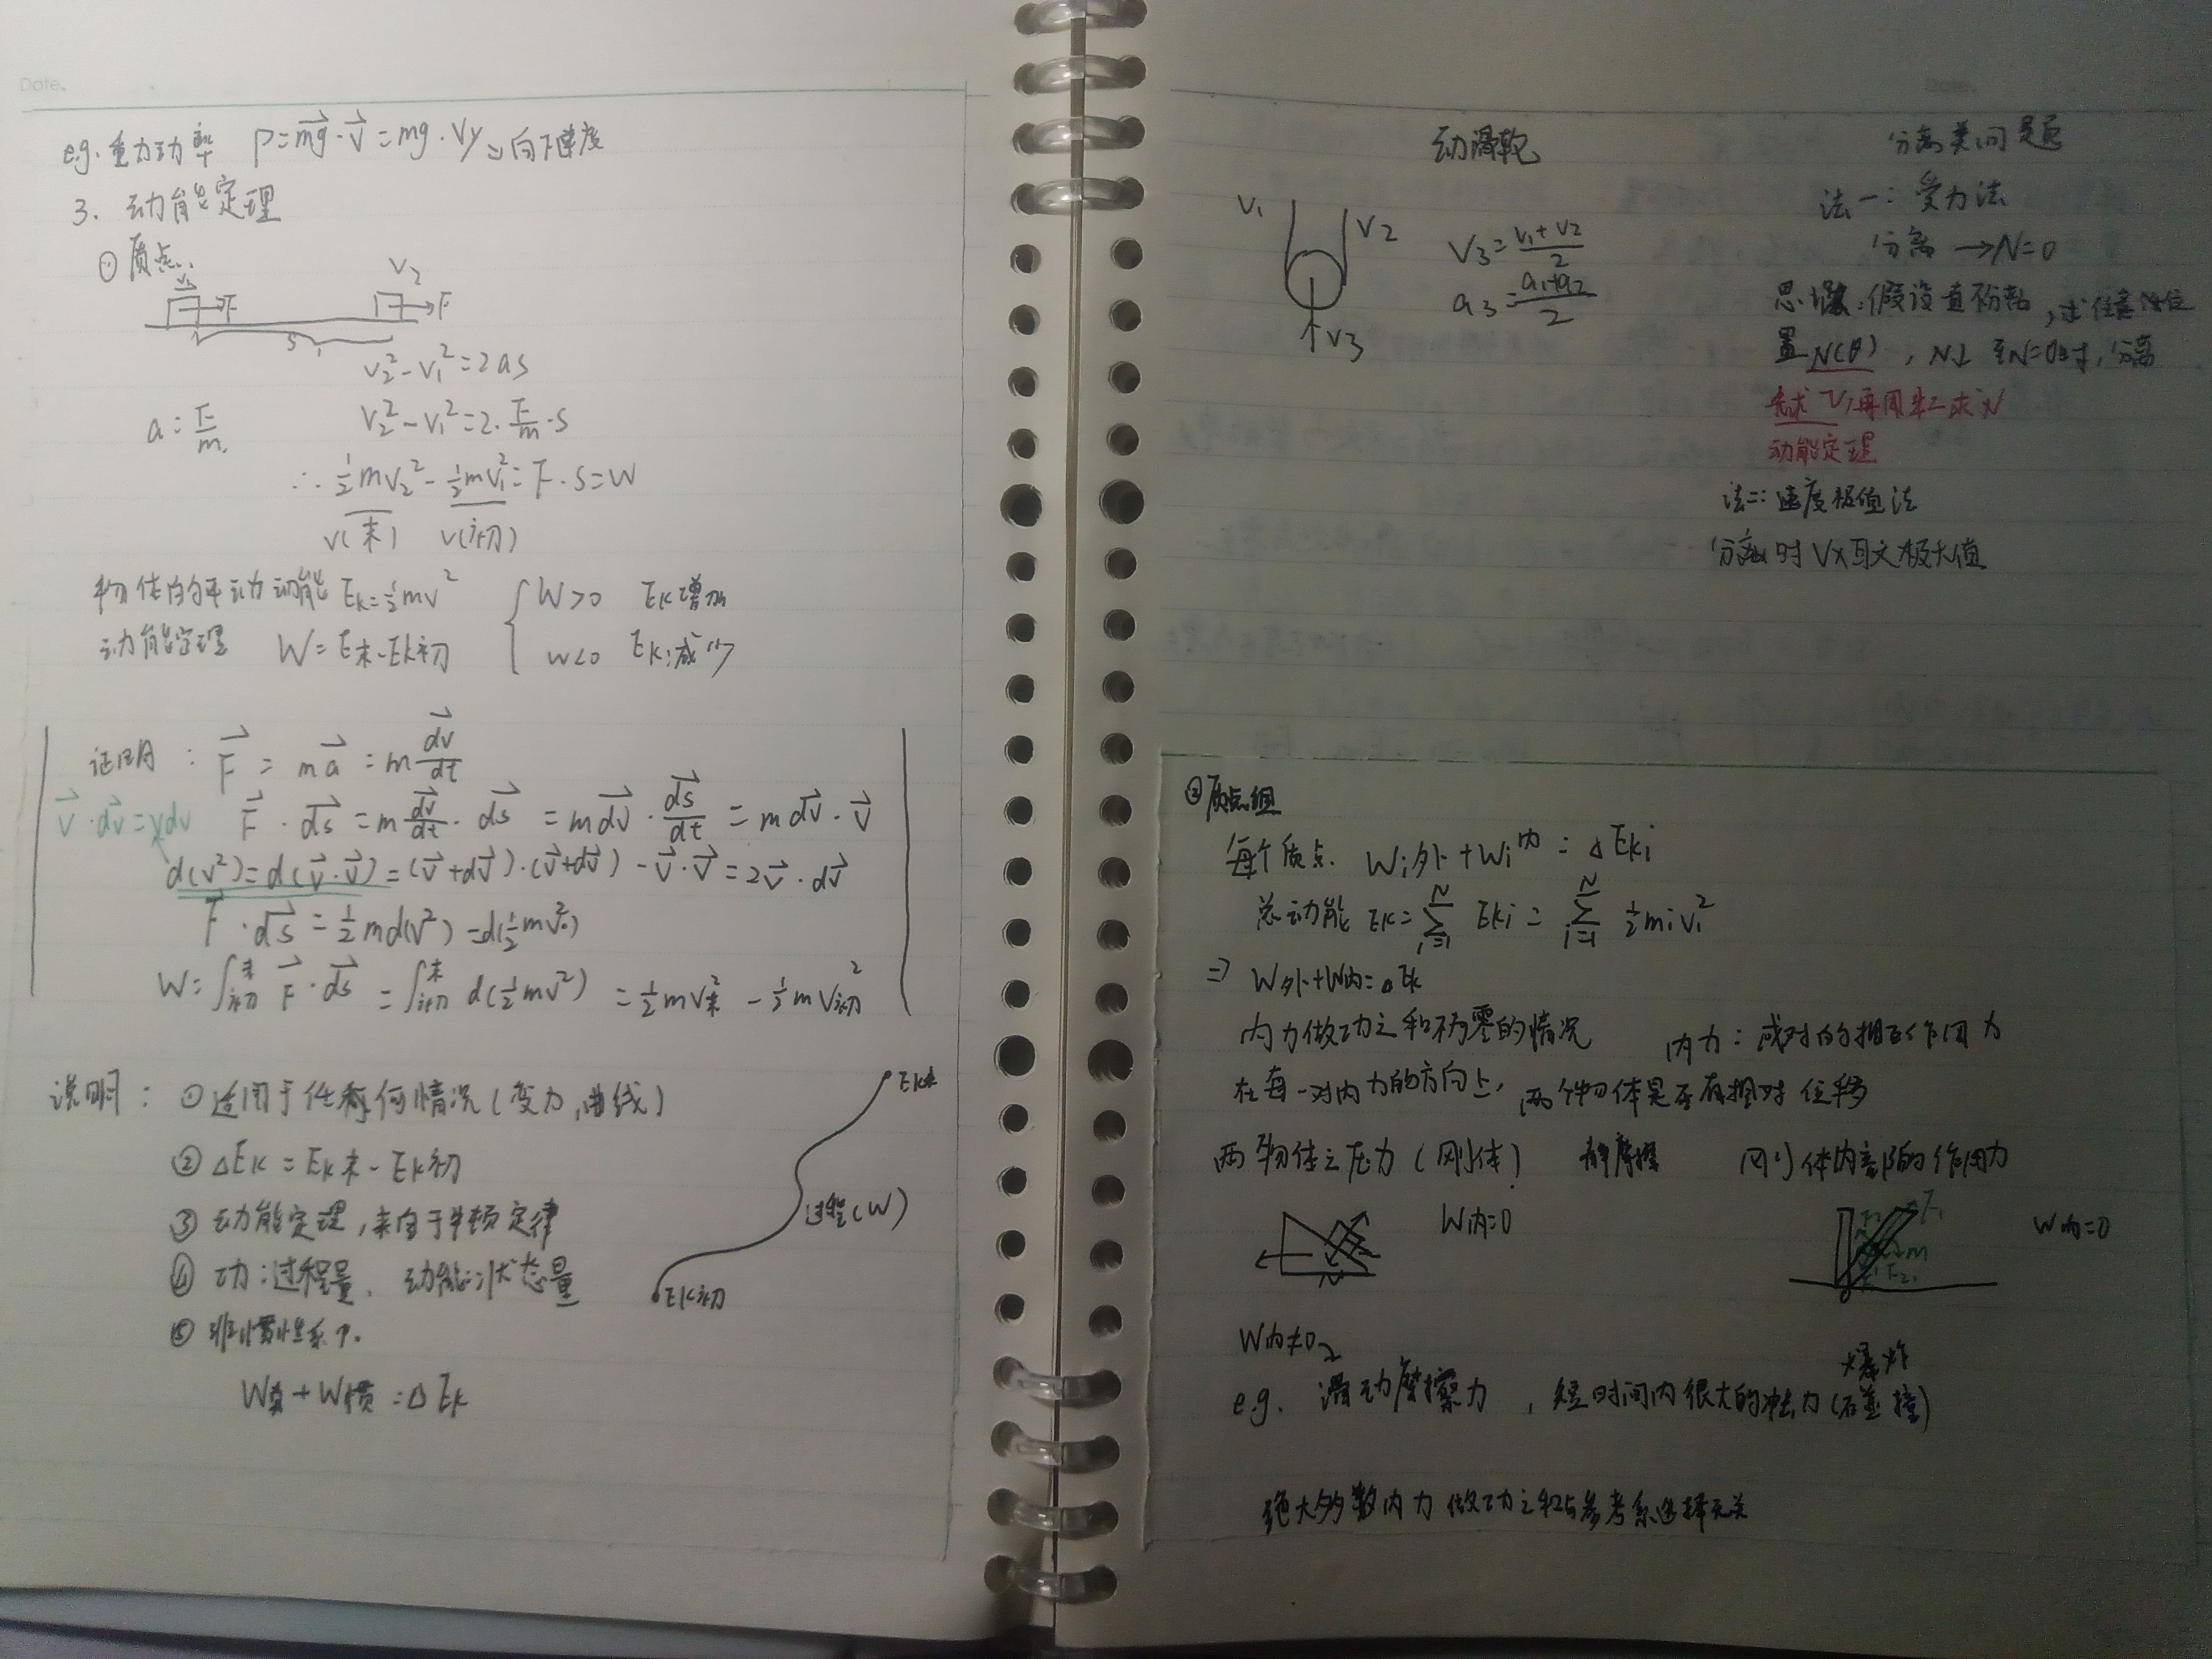 Date.
e.g. 重力功率 P=mg·v=mg·Vy→向下速度
3. 动能定理
① 质点.
V₁ F V₂ F
S
V₂²-V₁²=2as
a=F/m. V₂²-V₁²=2·F/m·s
∴ ½mV₂²-½mV₁²=F·s=W
V(末) V(初)
物体的平动动能 Ek=½mv² { W>0 Ek增加
动能定理 W=E末-Ek初 W<0 Ek减少
证明: F⃗=ma⃗=m dv⃗/dt
v⃗·dv⃗=vdv F⃗·ds⃗=m dv⃗/dt·ds⃗=mdv⃗·ds⃗/dt=mdv⃗·v⃗
d(v²)=d(v⃗·v⃗)=(v⃗+dv⃗)·(v⃗+dv⃗)-v⃗·v⃗=2v⃗·dv⃗
F⃗·ds⃗=½md(v²)=d(½mv²)
W=∫初末 F⃗·ds⃗=∫初末 d(½mv²)=½mv末²-½mv初²
说明: ①适用于任何情况(变力,曲线)
② ΔEk=Ek末-Ek初
③ 动能定理,来自于牛顿定律
④ 功:过程量. 动能:状态量
⑤ 非惯性系下.
W真+W惯=ΔEk
Ek末
过程(W)
Ek初
Date.
动滑轮
V₁ V₂ V₃=(V₁+V₂)/2
a₃=(a₁+a₂)/2
V₃
分离类问题
法一:受力法
分离→N=0
思想:假设直不分离,求任意位
置N(θ),N↓至N=0时,分离
先求V,再用牛二求N
动能定理
法二:速度极值法
分离时Vx取极大值
②质点组
每个质点. Wi外+Wi内=ΔEki
总动能 Ek=∑(i=1→N) Eki=∑(i=1→N) ½mivi²
⇒ W外+W内=ΔEk
内力做功之和为零的情况 内力:成对的相互作用力
在每一对内力的方向上,两个物体是否有相对位移
两物体之压力(刚体) 刚体内部的作用力
W内=0 W内=0
W内≠0
e.g. 滑动摩擦力,短时间内很大的冲力(碰撞)
爆炸
绝大多数内力做功之和与参考系选择无关